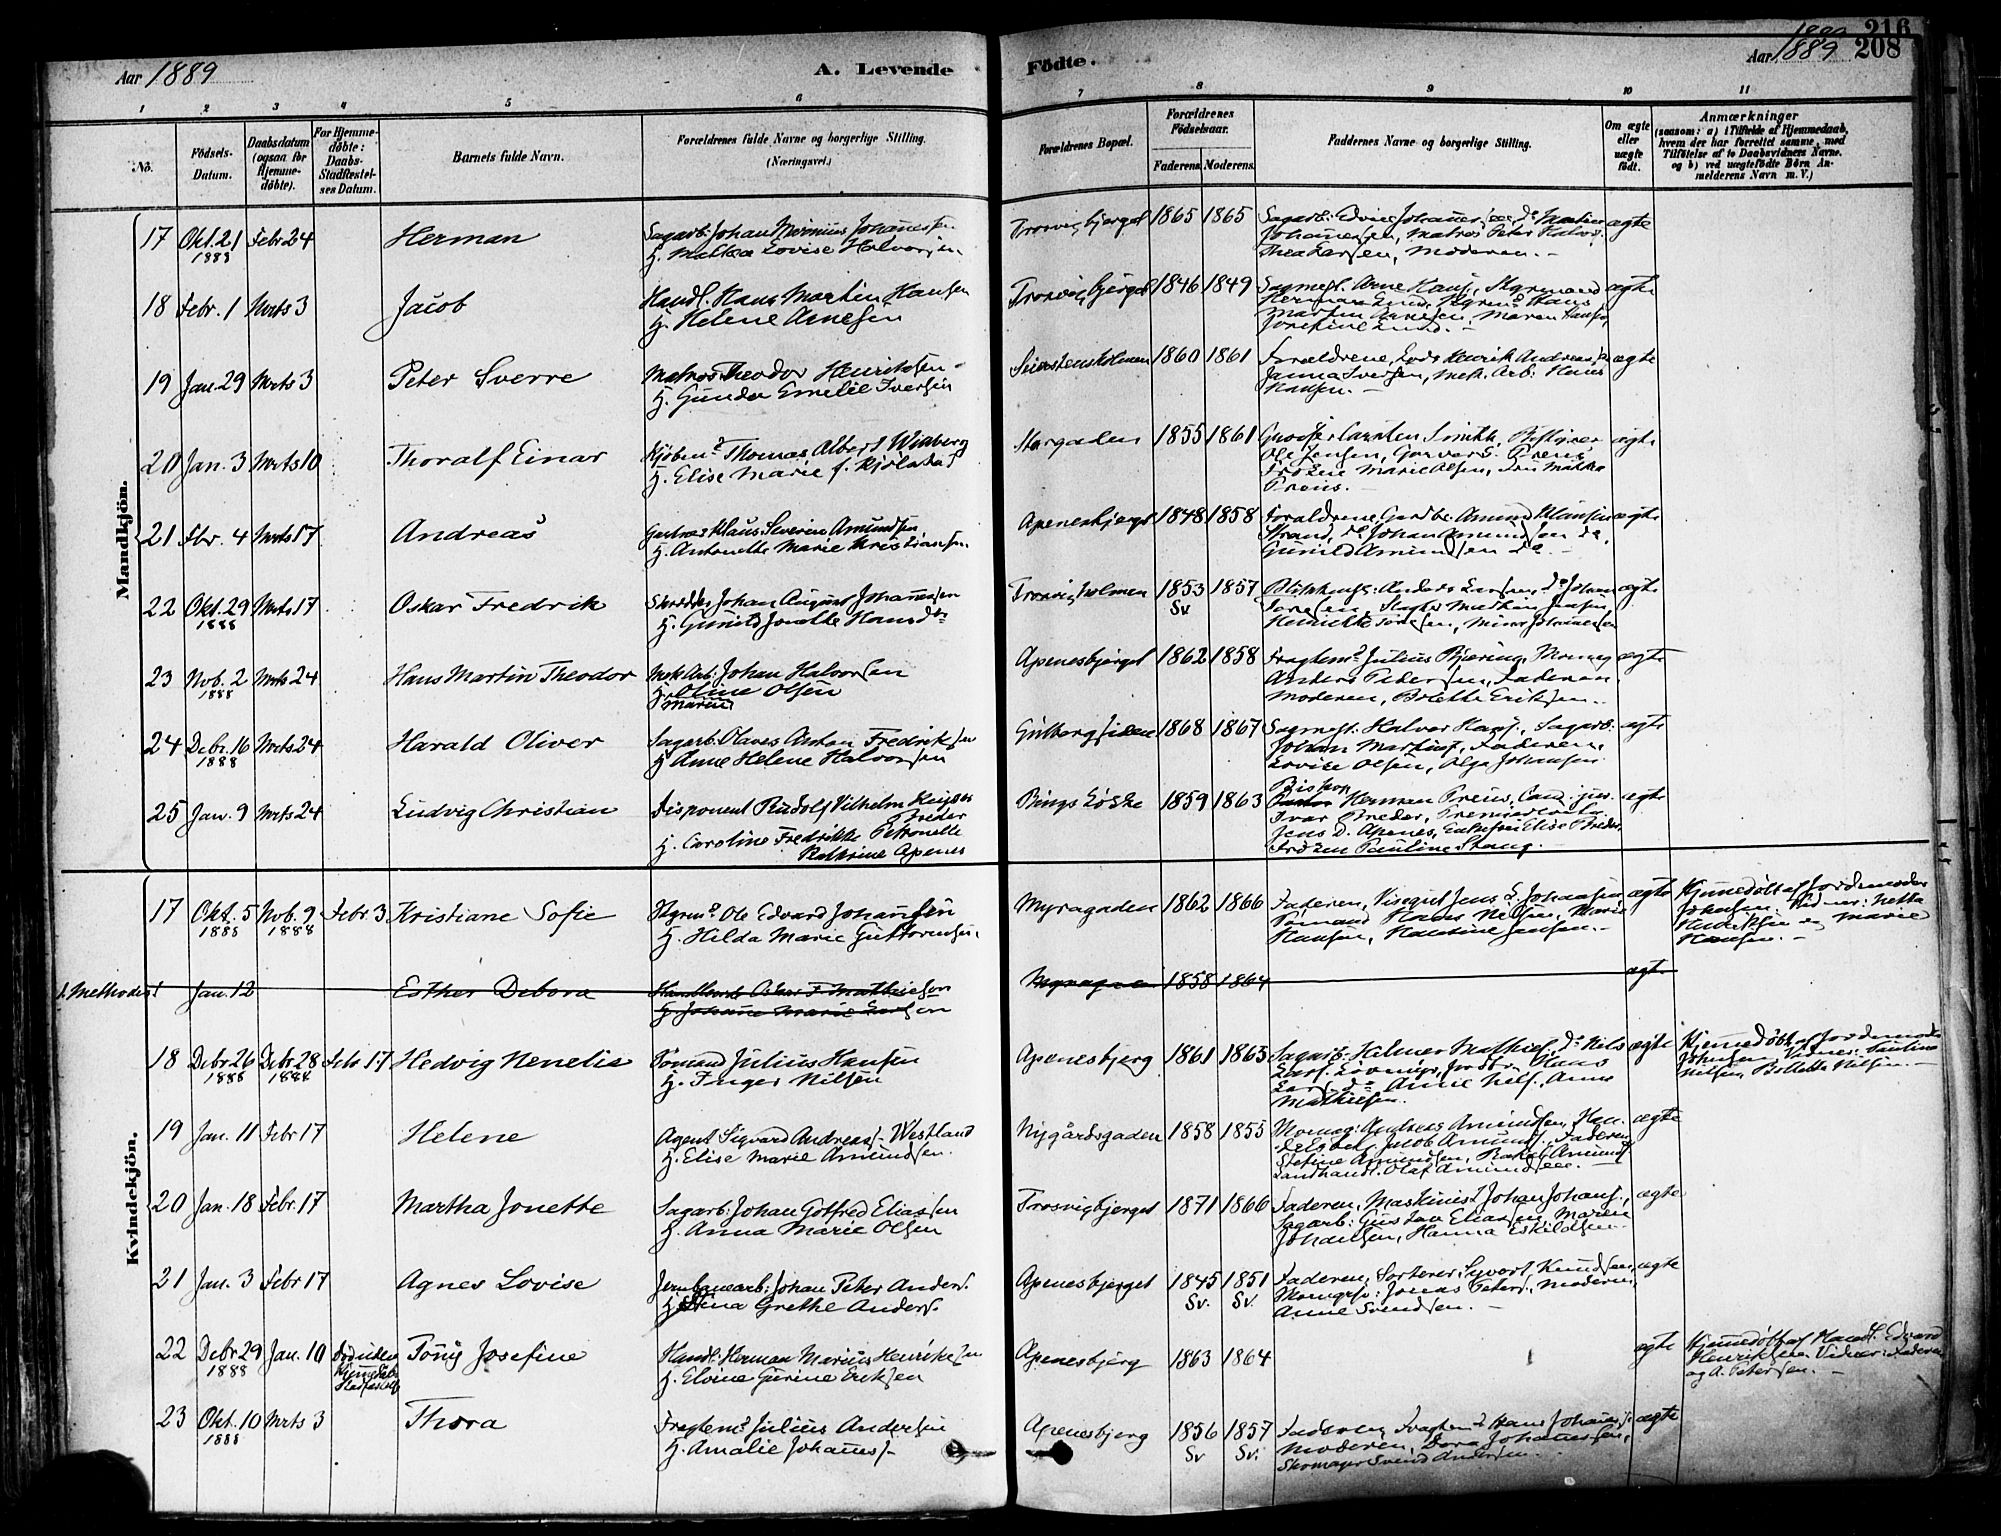 Aar 1889
A. Levende
Fødte.
1889 216
Aar 1889 208
1 2 3 4 5 6 7 8 9 10 11
No.
Fødsels-Datum.
Daabsdatum (ogsaa for Hjemmedøbte).
For Hjemmedøbte: Daabs-Stadfæstelses Datum.
Barnets fulde Navn.
Forældrenes fulde Navne og borgerlige Stilling.
(Næringsvei.)
Forældrenes Bopæl.
Forældrenes Fødselsaar.
Faderens. Moderens.
Faddernes Navne og borgerlige Stilling.
Om ægte eller uægte født.
Anmærkninger
(saasom: a) i Tilfælde af Hjemmedaab, hvem der har forrettet samme, med Tilføielse af to Daabsvidners Navne, og b) ved uægtefødte Børn Anmelderens Navn m. V.)
Mandkjøn.
17 Okt. 21 1888 Febr 24 Herman
Sagarb. Johan Johannessen
H. Mathea Lovise Halvorsen
Trosvigbjerget 1865 1865
Moderen. ægte
18 Febr. 1 Mrts 3 Jacob
Handl. Hans Martin Hansen
H. Helene Arnesen
Trosvigbjerget 1846 1849
Sagmest. Arne Hans., Styrmand
Martin Arnesen, Maren Hansen,
Josefine Lund. ægte
19 Jan. 29 Mrts 3 Peter Sverre
Matros Theodor Henriksen
H. Gunda Emelie Iversen
1860 1861
Forældrene, Lods Henrik Andreas.
Janna Iversen, Mek. Arb. Hans
Hansen. ægte
20 Jan. 3 Mrts 10 Thoralf Einar
Kjøbm. Thomas Albert Wiaberg
H. Elise Marie f.
Storgaden 1855 1861
Grosser Carsten Smith,
Ole Jensen, Garver
Frøken Marie Olsen, Fru
ægte
21 Fbr. 4 Mrts 17 Andreas
Klaus Severin Amundsen
H. Antonette Marie Kristiansen
Apenesbjerget 1848 1858
Forældrene, Amund Klausen
Strand, do Johan Amundsen do,
Gunild Amundsen do. ægte
22 Okt. 29 1888 Mrts 17 Oskar Fredrik
Skredder Johan August Johannesen
H. Gunild Jonette Hansd.
Trosvigholmen 1853 Sv 1857
Anders Larsen, do Johan
ægte
23 Nob. 2 1888 Mrts 24 Hans Martin Theodor
Mek Arb. Johan Halvorsen
H. Oline Olsen
Marie
Apenesbjerget 1862 1858
Fragtem. Julius Bjering,
Anders Pedersen, Faderen
Moderen, Bolette Eriksen. ægte
24 Debr. 16 1888 Mrts 24 Harald Oliver
Sagarb. Olaves Anton Fredriksen
H. Anne Helene Halvorsen
Gulbergsiden 1868 1867
Sagmest. Halvor Hans., Sagarb.
Johan Martins., Faderen,
Lovise Olsen, Olga Johansen. ægte
25 Jan. 9 Mrts 24 Ludvig Christian
Disponent Rudolf Vilhelm Keyser
Breder
H. Caroline Fredrikke Petronelle
Kathrine Apenes
Bings Løkke 1859 1863
Biskop
Herman Preus, Cand. jur.
Ivar Breder, Premierløitn.
Jens D. Apenes, Enkefru Elise Breder,
Frøken Pauline Stang. ægte
Kvindekjøn.
17 Okt. 5 1888 Nob. 9 1888 Febr. 3 Kristiane Sofie
Styrm. Ole Edvard Johansen
H. Hilda Marie Guttormsen.
Myragaden 1862 1866
Faderen, Jens L. Johansen
Sømand Hans Nilsen, Marie
Hansen, Jensen. ægte
Hjemmedøbt af Jordemoder
Johnsen. Vidner: Netta
Fredriksen og Marie
Hansen.
t. Methodist Jan. 12 Esther Debora
Oskar F. Mathiesen
H. Johanne Marie
1858 1864 ægte
18 Debr 26 1888 Debr 28 1888 Febr 17 Hedvig Nenelie
Sømand Julius Hansen
H. Inger Nilsen
Apenesbjerg 1861 1863
Sagarb. Hilmer Mathies., do Nils
Lars. Hans
Lars. do Amie Nils., Anna
Mathiesen. ægte
Hjemmedøbt af Jordemoder
Johnsen, Vidner: Pauline
Nilsen, Bolette Nilsen.
19 Jan. 11 Febr 17 Helene
Agent Sigvard Andreas. Westland
H. Elise Marie Amundsen.
Nygårdsgaden 1858 1855
Andreas Amundsen,
Jacob Amunds., Faderen,
Stefine Amundsen, Amunds.
Landhandl. Olaf Amundsen. ægte
20 Jan. 18 Febr. 17 Martha Jonette
Sagarb. Johan Gotfred Eliassen
H. Anna Marie Olsen
Trosvigbjerget 1871 1866
Faderen, Maskinist Johan Johans.,
Sagarb: Gustav Eliassen, Maren
Johansen, Hanna Eskildsen. ægte
21 Jan. 3 Febr 17 Agnes Lovise
Jernbanearb: Johan Peter Anders.
H. Stina Grethe Anders.
Apenesbjerget 1845 Sv. 1851 Sv.
Faderen, Sorterer Syvert Knudsen,
Jonas Peters., Moderen,
Anne Svendsen. ægte
22 Debr 29 1888 Jan. 10 Død uden Hjemmedaabs Stadfæst. Tony Josefine
Handl. Herman Marius Henriksen
H. Elvine Gurine Eriksen
Apenesbjerg 1863 1864 ægte
Hjemmedøbt af Handl. Edvard
Henriksen Vidner: Faderen
og A. Petersen.
23 Okt. 10 1888 Mrts 3 Thora
Fragtem. Julius Andersen
H. Amalie Johannes.
Apenesbjerg 1856 Sv 1857 Sv.
Faderen, Fragtem. Hans Johannes.
Moderen, Dora Johannessen,
Skomager Svend Andersen. ægte